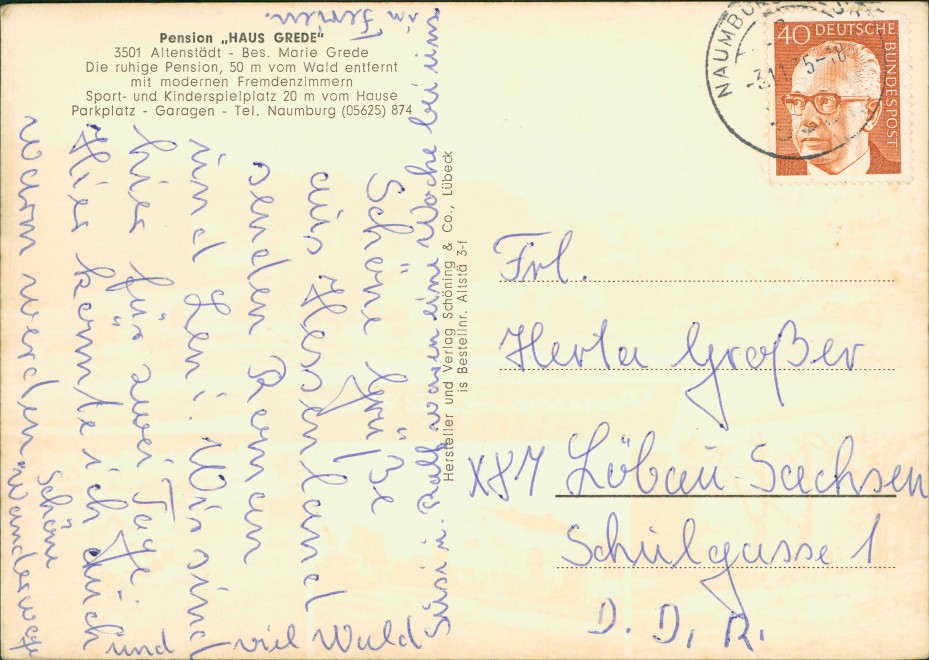 Pension „HAUS GREDE"
3501 Altenstädt - Bes. Marie Grede
Die ruhige Pension, 50 m vom Wald entfernt
mit modernen Fremdenzimmern
Sport- und Kinderspielplatz 20 m vom Hause
Parkplatz - Garagen - Tel. Naumburg (05625) 874
Schöne Grüße
aus Hessenland
senden Roman
und Leni. Wir sind
hier für zwei Tage.
Hier könnte ich auch
warm werden.
Schöne
Wanderwege
und viel Wald
Susi u. Ralf waren eine Woche bei uns
in Ferien.
Hersteller und Verlag Schöning & Co., Lübeck
is Bestellnr. Altstä 3-f
NAUMBURG
40 DEUTSCHE
BUNDESPOST
Frl.
Herta Großer
X87 Löbau-Sachsen
Schulgasse 1
D. D. R.